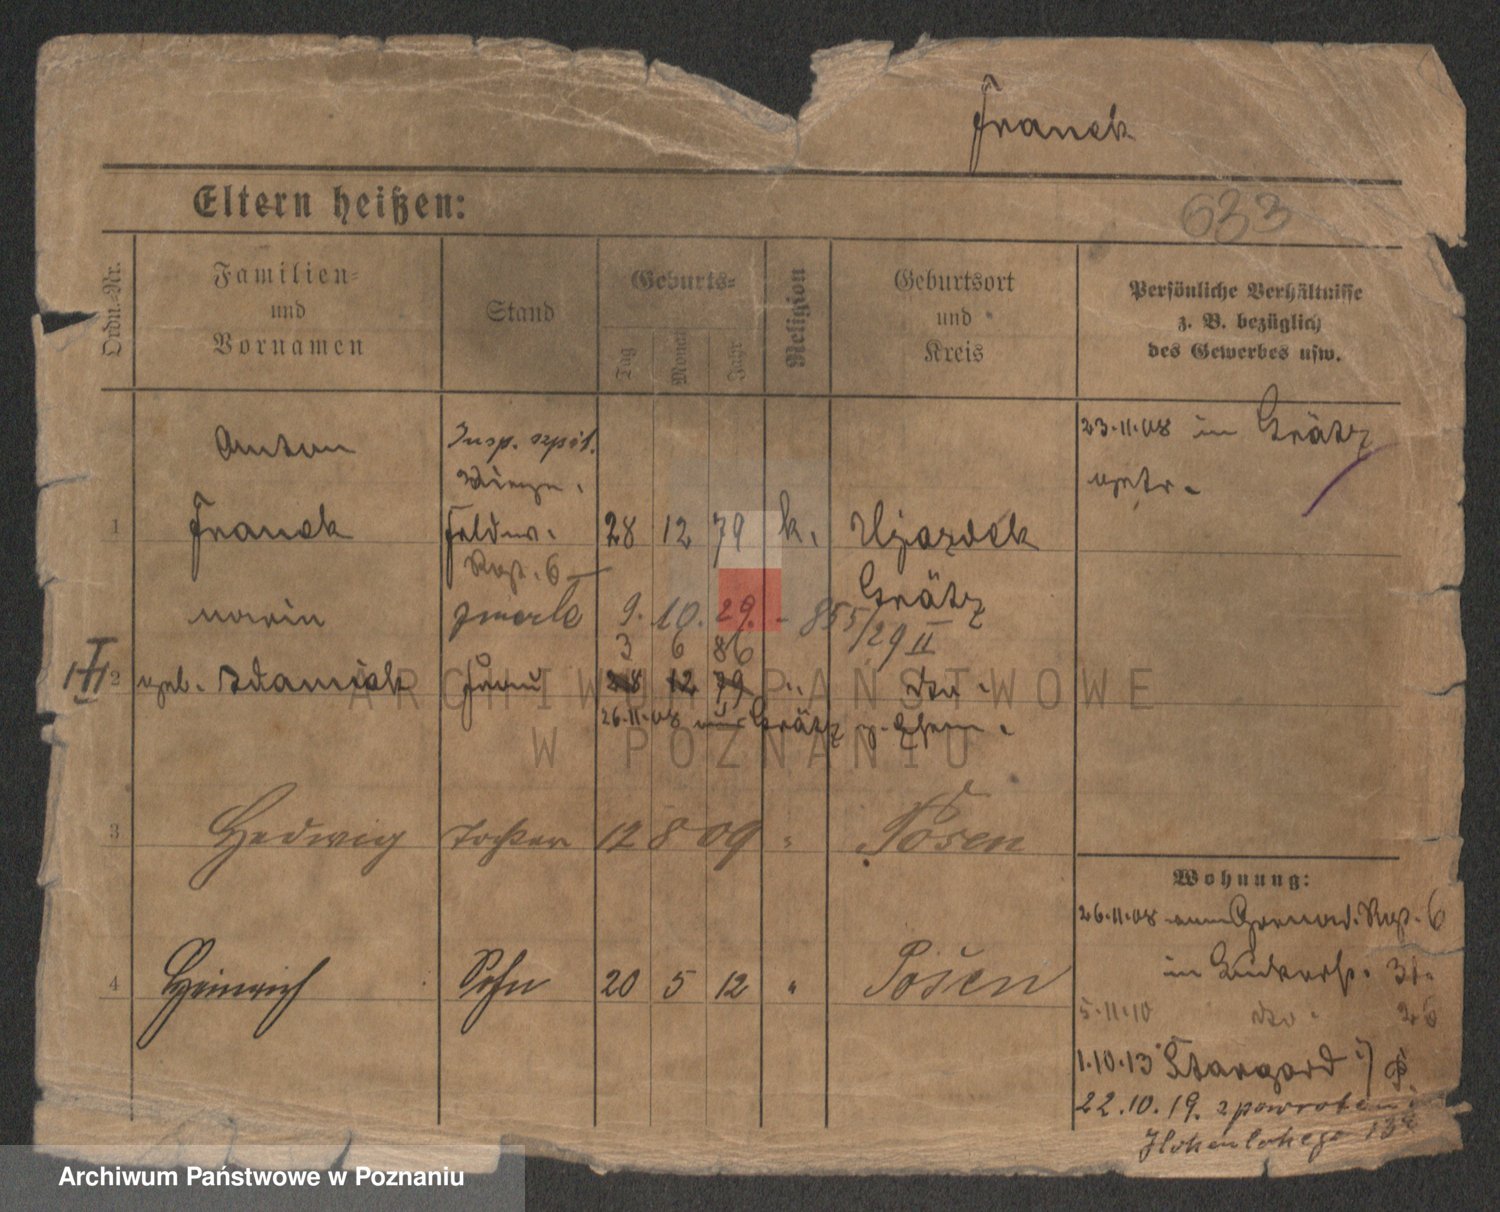 Franck
Eltern heißen:
633
Ordn.-Nr.
Familien-
und
Vornamen
Stand
Geburts-
Tag
Monat
Jahr
Religion
Geburtsort
und
Kreis
Persönliche Verhältnisse
z. B. bezüglich
des Gewerbes usw.
Anton
Insp. szpit.
23.11.08 in Grätz
getr.
1 Franck Feldw. 28 12 79 k. Ujazdek
Rgt. 6
Grätz
Maria zmarła 9. 10. 29. - 855/29 II
3 6 86
2 geb. Adamczak Frau 28 12 79 " dto.
26.11.08 aus Grätz z. Ehem.
3 Hedwig Tochter 12 8 09 " Posen
Wohnung:
26.11.08 vom Grenad. Rgt. 6
4 Heinrich Sohn 20 5 12 " Posen
in 31.
5.11.10 dto. 26
1.10.13 Stargard i/P.
22.10.19. z powrotem
Hohenlohego
ARCHIWUM PAŃSTWOWE
W POZNANIU
Archiwum Państwowe w Poznaniu